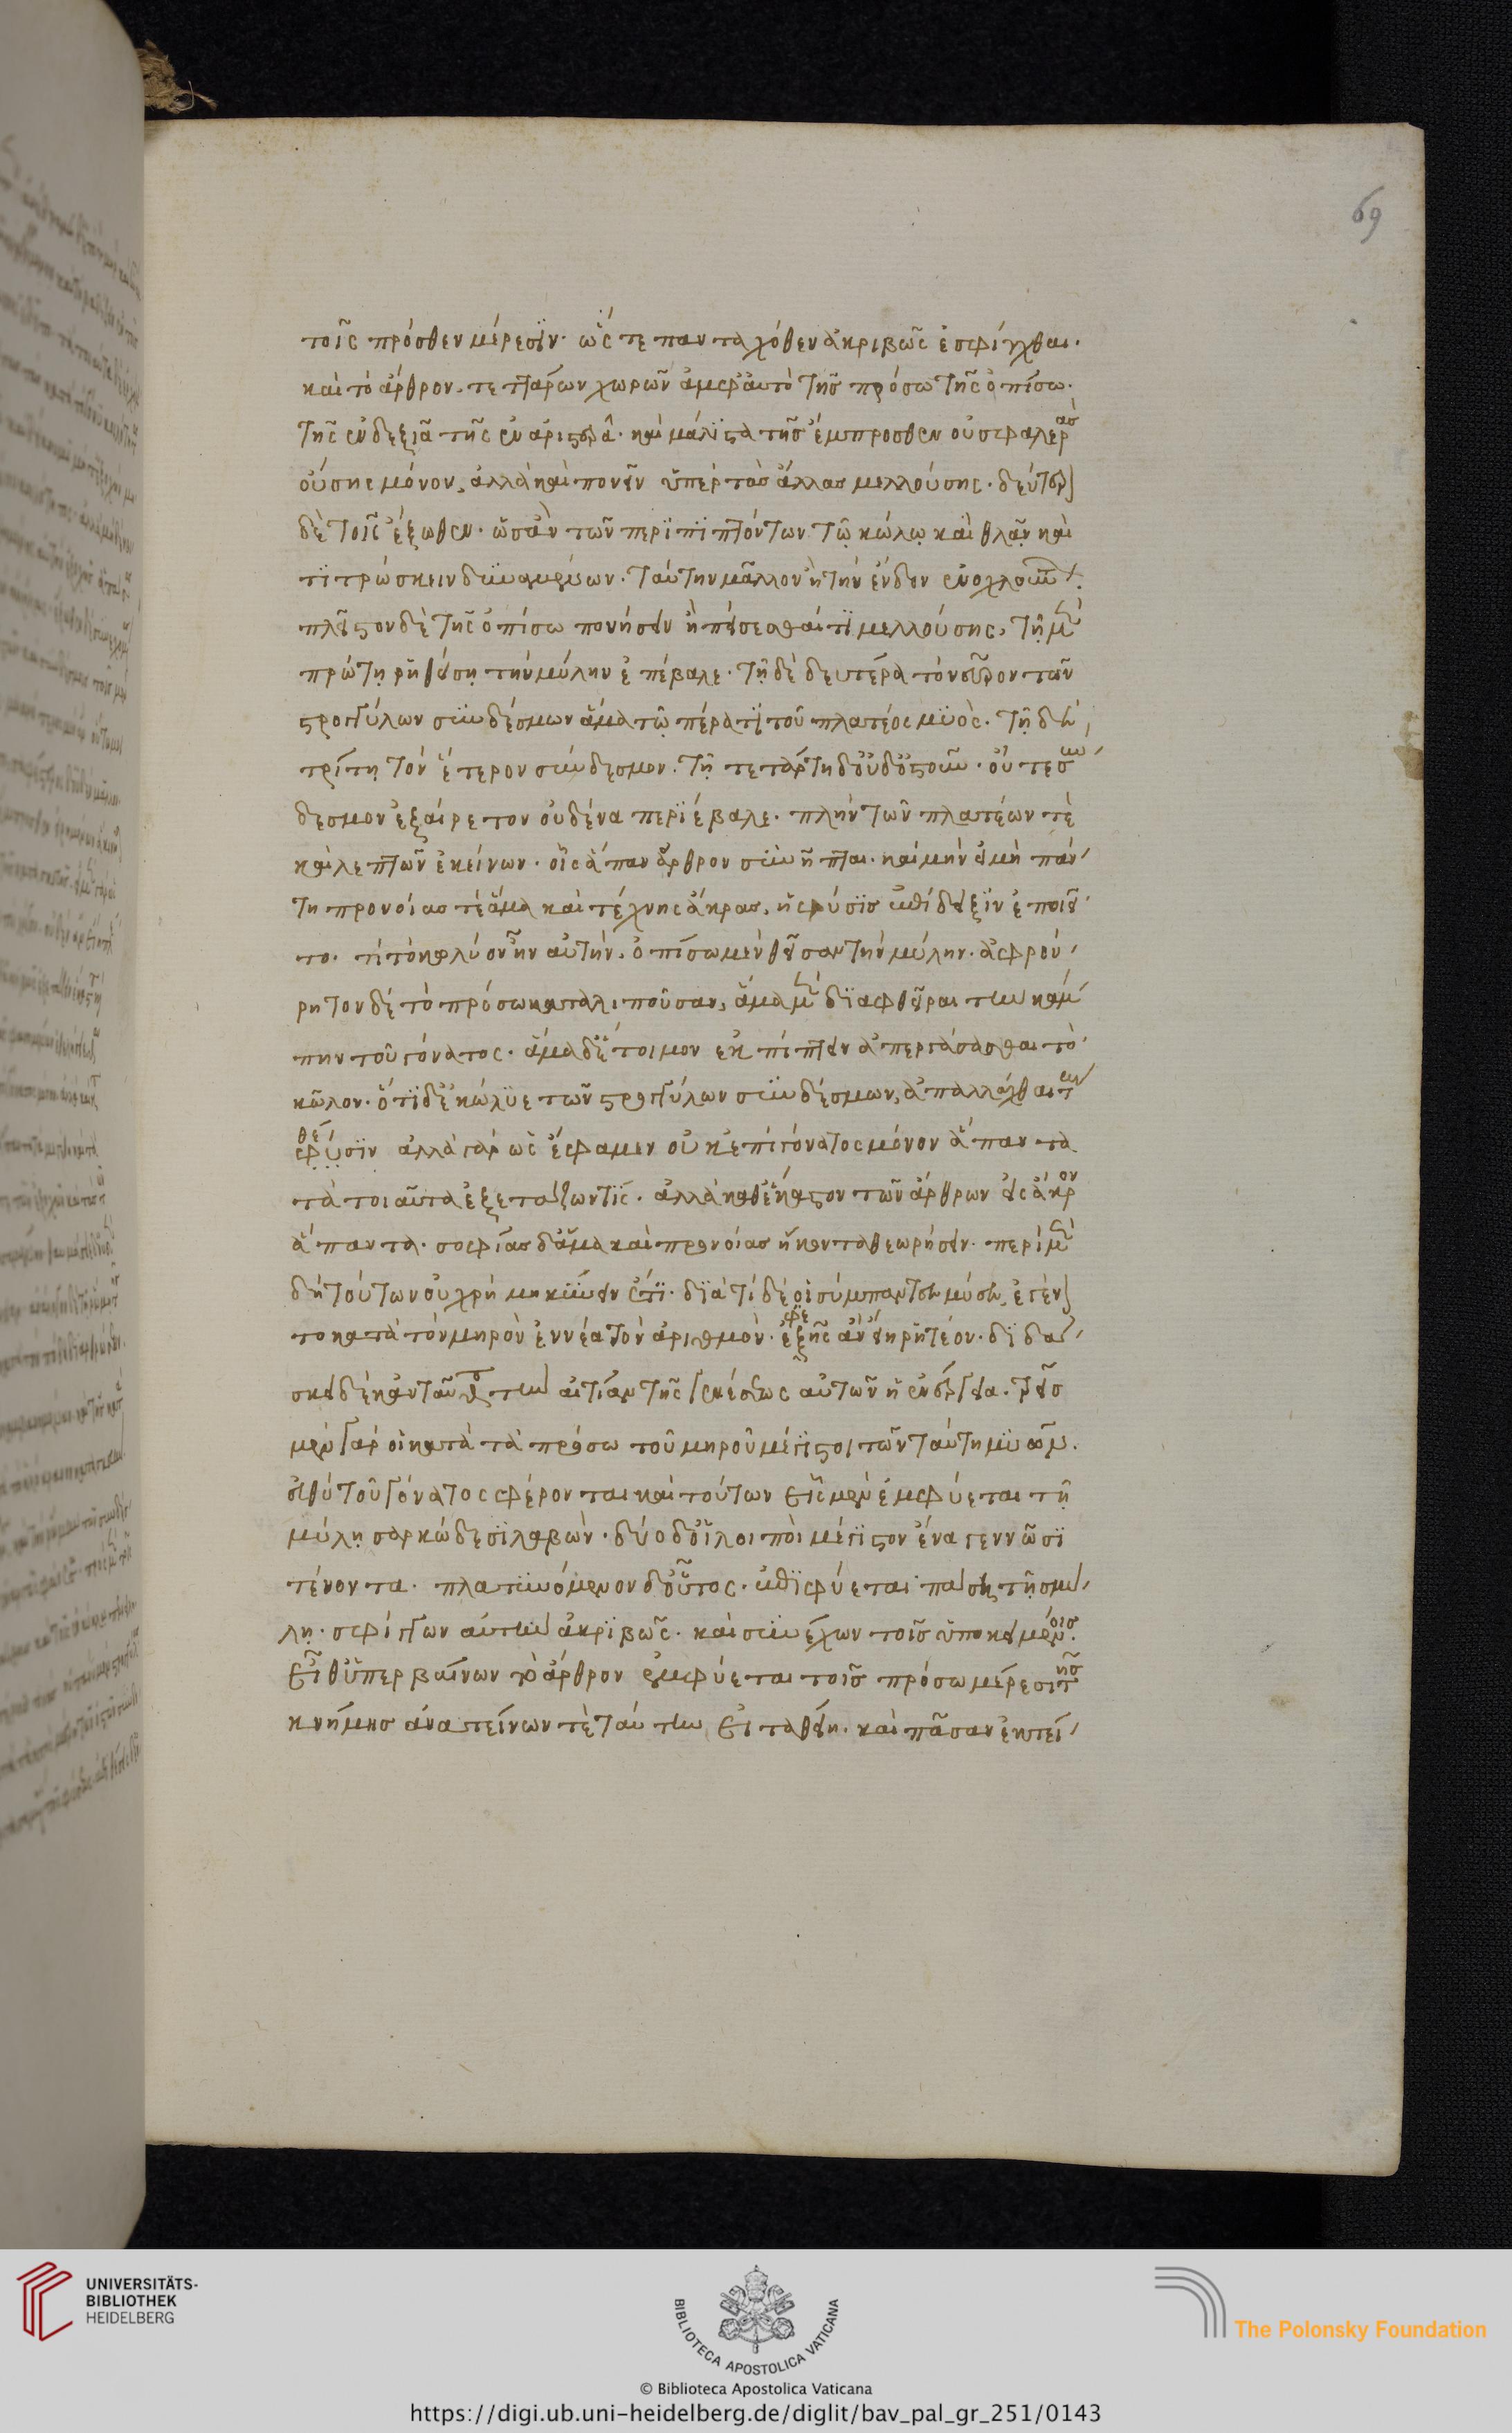 69
τοῖς πρόσθεν μέρεσϊν· ὥς τε πανταχόθεν ἀκριβῶς ἐσφίγχθαι·
καὶ τὸ ἄρθρον. τεττάρων χωρῶν ἀμφ' αὐτὸ τῆς πρόσω τῆς ὀπίσω·
τῆς ἐν δεξιᾶ τῆς ἐν ἀριστερᾶ· καὶ μάλϊστα τῆς ἔμπροσθεν οὐ σφαλερᾶς
οὔσης μόνον, ἀλλὰ καὶ πονεῖν ὑπὲρ τὰς ἄλλας μελλούσης· δεύτερ
δὲ τοῖς ἔξωθεν· ὡσὰν τῶν περϊπϊπτόντων τῶ κώλω καὶ θλᾶν καὶ
τϊτρώσκειν δϋναμένων· ταύτην μᾶλλον ἢ τὴν ἔνδον ἐνοχλούν
πλεῖστον δὲ τῆς ὀπίσω πονήσειν ἢ πείσεσθαί τϊ μελλούσης, τῆ μὲν
πρώτη ῥηθείση τὴν μύλην ἐπέβαλε· τῆ δὲ δευτέρα τὸν ἕτερον τῶν
στρογγύλων συνδέσμων ἅμα τῶ πέρατϊ τοῦ πλατέος μϋὸς· τῆ δὲ
τρίτη τὸν ἕτερον σύνδεσμον· τῆ τετάρτη δ' οὐδ' ὀστοῦν· οὔτε συν
δεσμον ἐξαίρετον οὐδένα περϊέβαλε· πλὴν τῶν πλατέων τὲ
καὶ λεπτῶν ἐκείνων· οἷς ἅπαν ἄρθρον συνῆπται· καὶ μὴν εἰ μὴ πάν
τη προνοίας τὲ ἅμα καὶ τέχνης ἄκρας, ἡ φύσϊς ἐπίδειξϊν ἐποιεῖ
το· τί τὸ κωλύον ἦν αὐτὴν, ὀπίσω μὲν θεῖσαν τὴν μύλην· ἀφρού
ρητον δὲ τὸ πρόσω καταλιποῦσαν, ἅμα μὲν δϊαφθεῖραι τὴν καμ
πην τοῦ γόνατος· ἅμα δ' ἕτοιμον ἐκπίπτειν ἀπεργάσασθαι τὸ
κῶλον· ὅτϊ δ' ἐκώλϋε τῶν στρογγύλων συνδέσμων, ἀπαλλάχθαι τὴν
θέ
φύσϊν ἀλλὰ γὰρ ὡς ἔφαμεν οὐκ ἐπὶ γόνατος μόνον ἅπαντα
τὰ τοιαῦτα ἐξετάζοντϊς· ἀλλὰ καθ' ἕκαστον τῶν ἄρθρων εἰς ἄκρον
ἅπαντα· σοφίας δ' ἅμα καὶ προνοίας ἥκοντα θεωρήσειν· περὶ μὲν
δὴ τούτων οὐ χρὴ μηκύνειν ἔτϊ· δϊὰ τί δὲ οἱ σύμπαντες μύες, ἐγέν
το κατὰ τὸν μηρὸν ἐννέα τὸν ἀριθμὸν· ἐφεξῆς ἂν εἴη ῥητέον· δϊδα
σκει δὲ κἀνταῦθα τὴν αἰτίαν τῆς γενέσεως αὐτῶν ἡ ἐνέργεια· τρεῖς
μὲν γὰρ οἱ κατὰ τὰ πρόσω τοῦ μηροῦ μέγϊστοι τῶν ταύτη μϋῶν·
εὐθὺ τοῦ γόνατος φέρονται καὶ τούτων εἷς μὲν ἐμφύεται τῆ
μύλη σαρκώδεσϊ λαβὼν· δύο δ' οἱ λοιποὶ μέγϊστον ἕνα γεννῶσϊ
τένοντα· πλατϋνόμενον δ' οὗτος· ἐπϊφύεται πάση τῆ μύ
λη· σφίγγων αὐτὴν ἀκρϊβῶς· καὶ συνέχων τοῖς ὑποκειμένοις·
εἶθ' ὑπερβαίνων τὸ ἄρθρον ἐμφύεται τοῖς πρόσω μέρεσι τῆς
κνήμης ἀνατείνων τὲ ταύτην εἰ ταθείη· καὶ πᾶσαν ἐκτεί
UNIVERSITÄTS-
BIBLIOTHEK
HEIDELBERG
BIBLIOTECA APOSTOLICA VATICANA
The Polonsky Foundation
© Biblioteca Apostolica Vaticana
https://digi.ub.uni-heidelberg.de/diglit/bav_pal_gr_251/0143